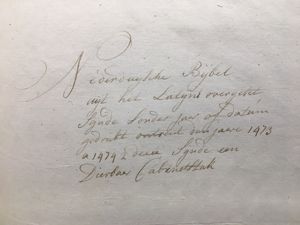 Nederduytsche Bijbel
uit het Latyn overgeset
Synde Sonder jaer of datum
gedrukt omtrent den jare 1473
a 1474 2 deele Synde een
Dierbaer Cabinetstuk